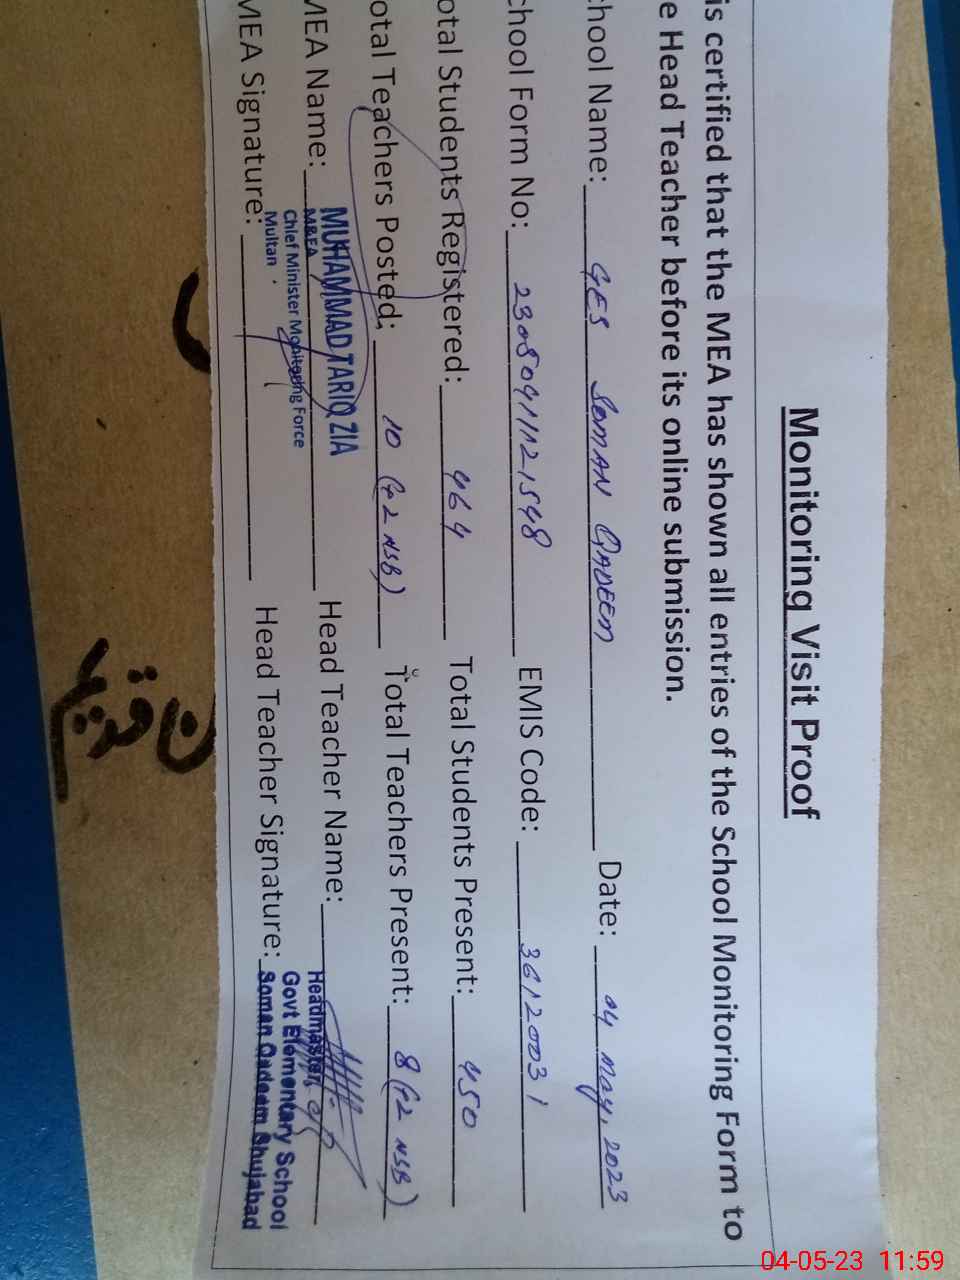 Monitoring Visit Proof
is certified that the MEA has shown all entries of the School Monitoring Form to
e Head Teacher before its online submission.
chool Name: GES SOMAN QADEEM Date: 04 May, 2023
chool Form No: 2308041121548 EMIS Code: 36120031
otal Students Registered: 464 Total Students Present: 450
otal Teachers Posted: 10 (+2 NSB) Total Teachers Present: 8 (+2 NSB)
MEA Name: MUHAMMAD TARIQ ZIA Head Teacher Name:
M&EA
Chief Minister Monitoring Force
Multan
MEA Signature: Head Teacher Signature:
Headmaster,
Govt Elementary School
Soman Qadeem Shujabad
04-05-23 11:59